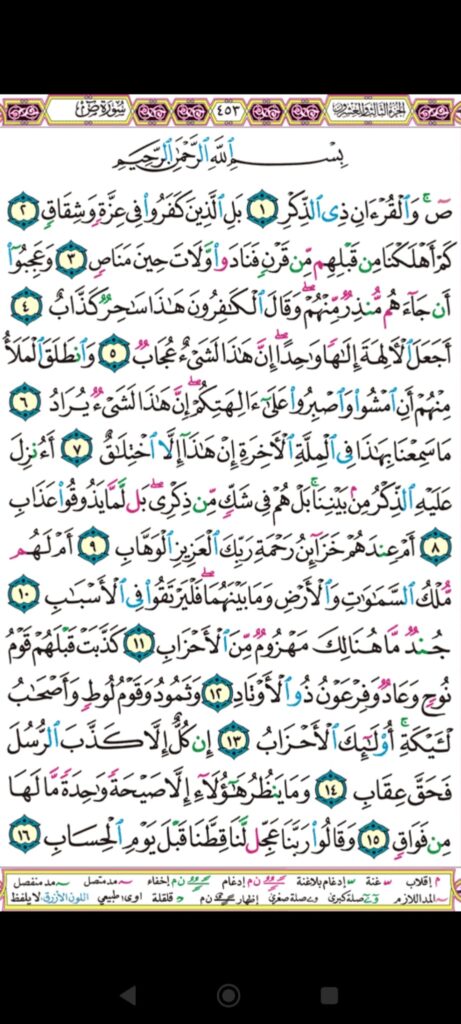 الجزء الثالث والعشرون ٤٥٣ سورة ص
بِسْمِ اللَّهِ الرَّحْمَٰنِ الرَّحِيمِ
صٓ ۚ وَالْقُرْءَانِ ذِي الذِّكْرِ ١ بَلِ الَّذِينَ كَفَرُوا فِي عِزَّةٍ وَشِقَاقٍ ٢
كَمْ أَهْلَكْنَا مِن قَبْلِهِم مِّن قَرْنٍ فَنَادَوا وَّلَاتَ حِينَ مَنَاصٍ ٣ وَعَجِبُوٓا
أَن جَآءَهُم مُّنذِرٌ مِّنْهُمْ ۖ وَقَالَ الْكَٰفِرُونَ هَٰذَا سَٰحِرٌ كَذَّابٌ ٤
أَجَعَلَ الْءَالِهَةَ إِلَٰهًا وَٰحِدًا ۖ إِنَّ هَٰذَا لَشَيْءٌ عُجَابٌ ٥ وَانطَلَقَ الْمَلَأُ
مِنْهُمْ أَنِ امْشُوا وَاصْبِرُوا عَلَىٰٓ ءَالِهَتِكُمْ ۖ إِنَّ هَٰذَا لَشَيْءٌ يُرَادُ ٦
مَا سَمِعْنَا بِهَٰذَا فِي الْمِلَّةِ الْءَاخِرَةِ إِنْ هَٰذَآ إِلَّا اخْتِلَٰقٌ ٧ أَءُنزِلَ
عَلَيْهِ الذِّكْرُ مِنۢ بَيْنِنَا ۚ بَلْ هُمْ فِي شَكٍّ مِّن ذِكْرِي ۖ بَل لَّمَّا يَذُوقُوا عَذَابِ
٨ أَمْ عِندَهُمْ خَزَآئِنُ رَحْمَةِ رَبِّكَ الْعَزِيزِ الْوَهَّابِ ٩ أَمْ لَهُم
مُّلْكُ السَّمَٰوَٰتِ وَالْأَرْضِ وَمَا بَيْنَهُمَا ۖ فَلْيَرْتَقُوا فِي الْأَسْبَٰبِ ١٠
جُندٌ مَّا هُنَالِكَ مَهْزُومٌ مِّنَ الْأَحْزَابِ ١١ كَذَّبَتْ قَبْلَهُمْ قَوْمُ
نُوحٍ وَعَادٌ وَفِرْعَوْنُ ذُو الْأَوْتَادِ ١٢ وَثَمُودُ وَقَوْمُ لُوطٍ وَأَصْحَٰبُ
لْـَٔيْكَةِ ۚ أُولَٰٓئِكَ الْأَحْزَابُ ١٣ إِن كُلٌّ إِلَّا كَذَّبَ الرُّسُلَ
فَحَقَّ عِقَابِ ١٤ وَمَا يَنظُرُ هَٰٓؤُلَآءِ إِلَّا صَيْحَةً وَٰحِدَةً مَّا لَهَا
مِن فَوَاقٍ ١٥ وَقَالُوا رَبَّنَا عَجِّل لَّنَا قِطَّنَا قَبْلَ يَوْمِ الْحِسَابِ ١٦
م إقلاب غنة إدغام بلاغنة ن م إدغام ن م إخفاء مد متصل مد منفصل
المد اللازم صلة كبرى صلة صغرى إظهار ن م قلقلة اوى؛ طبيعي اللون الأزرق لا يلفظ